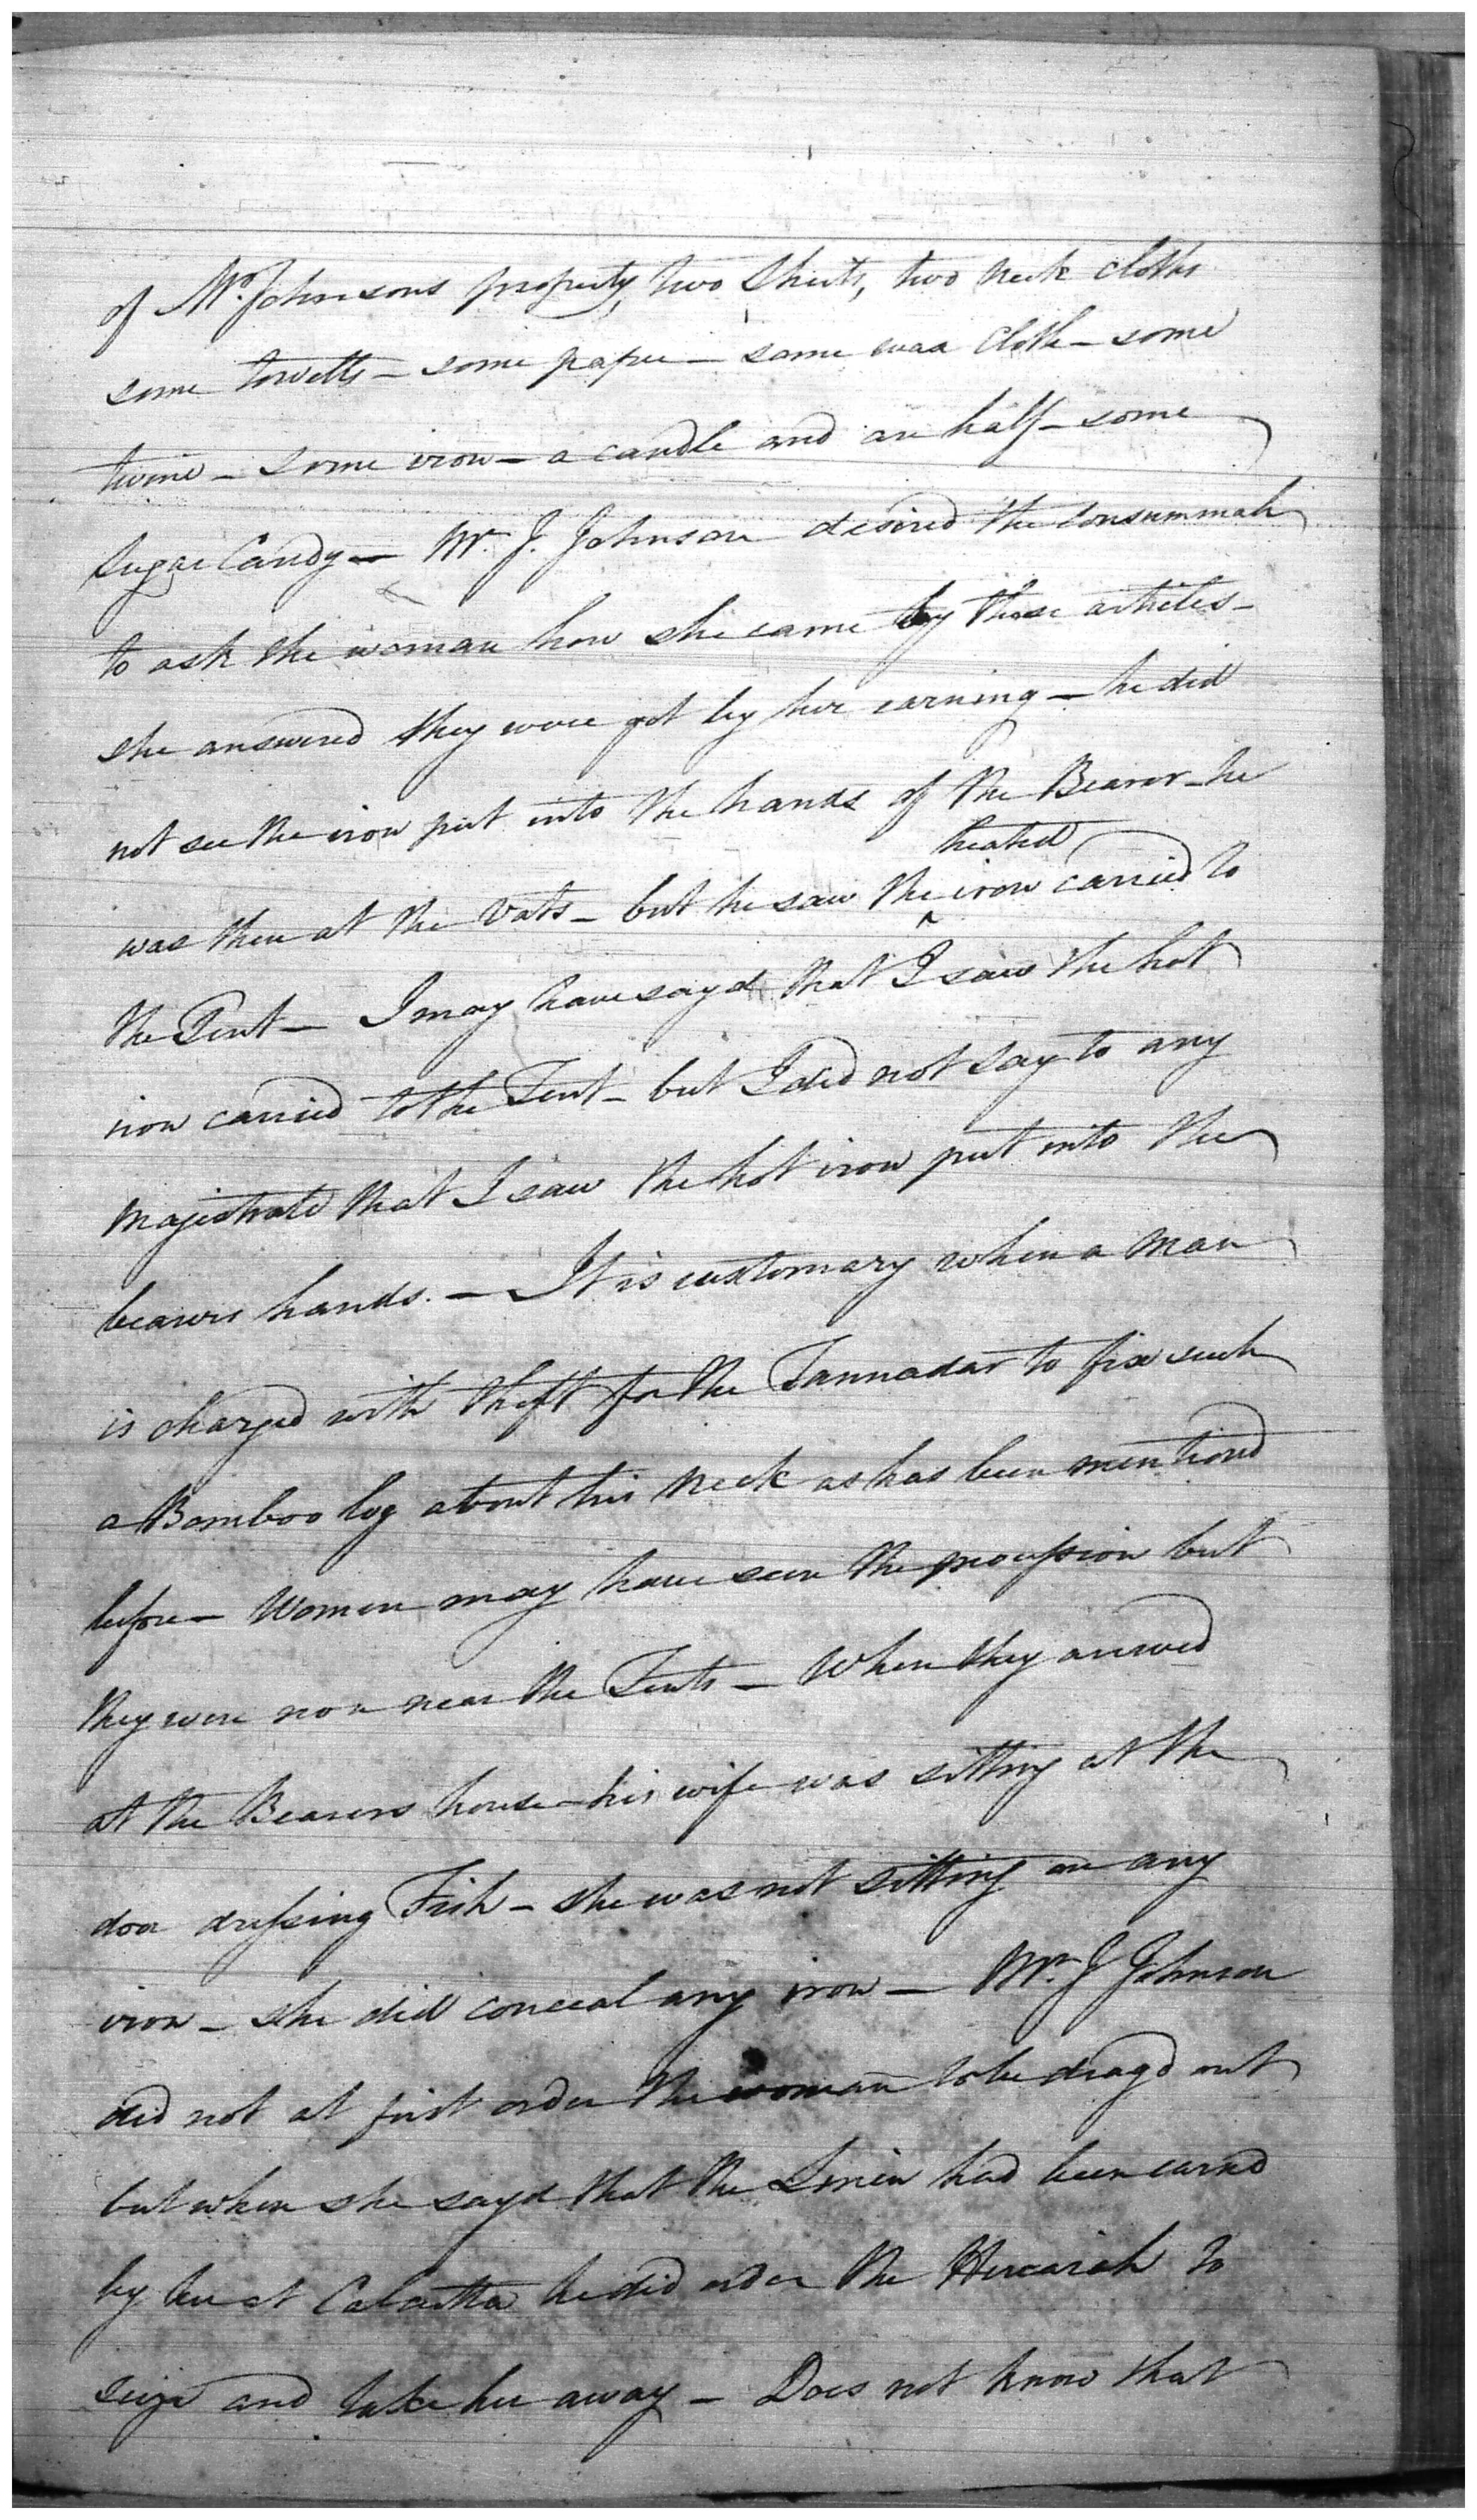 of Mr. Johnsons property, two Sheets, two neck cloths
some towells - some paper - some wax Cloth - some
twine - some iron - a candle and an half - some
Sugar Candy - Mr. J. Johnson desired the Consummah
to ask the woman how she came by these articles -
she answered they were got by her earning - he did
not see the iron put into the hands of the Bearer - he
was then at the Vats - but he saw the ^heated iron carried to
the Tent - I may have sayd that I saw the hot
iron carried to the Tent - but I did not say to any
Majestrate that I saw the hot iron put into the
bearers hands. - It is customary when a Man
is charged with theft for the Tannadar to fix such
a Bamboo log about his Neck as has been mentiond
before - Women may have seen the procession but
they were non near the Tents - When they arrived
at the Bearers house - his wife was sitting at the
door dressing Fish - she was not sitting on any
iron - she did conceal any iron - Mr. J Johnson
did not at first order the woman to be dragd out
but when she sayd that the Linen had been earnd
by her at Calcutta he did order the Hircarah to
seize and take her away - Does not know that